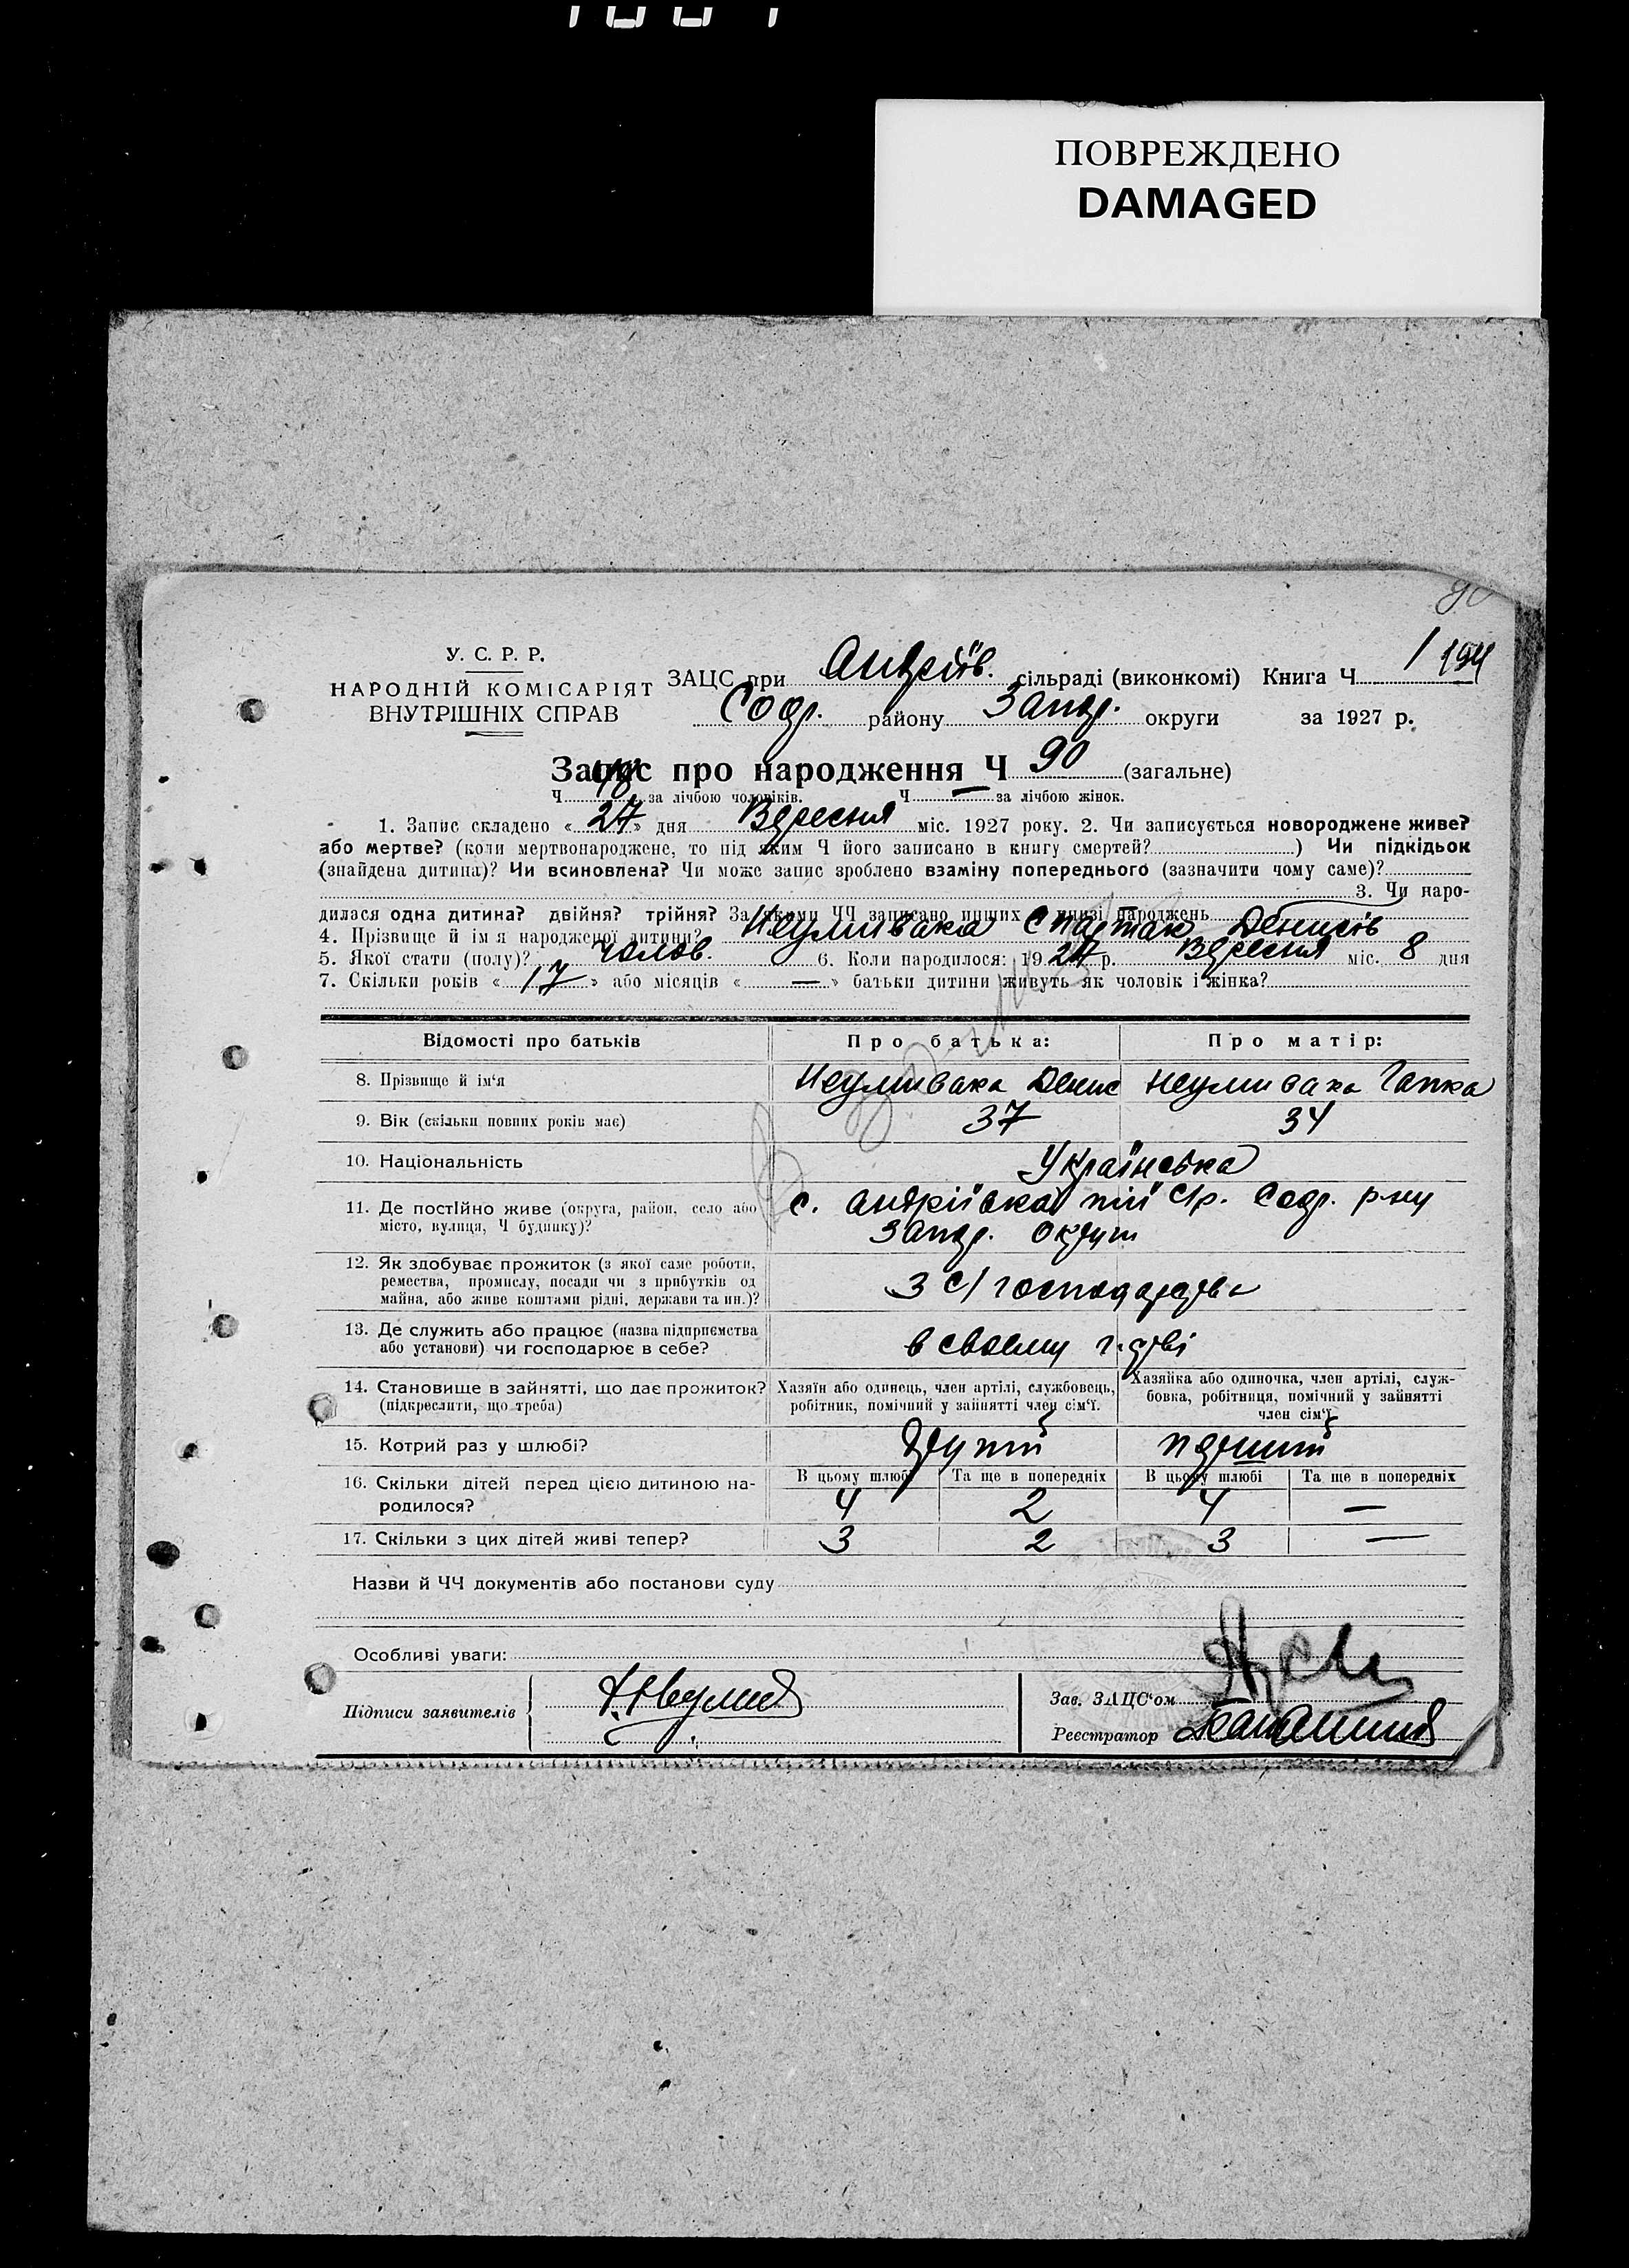 ПОВРЕЖДЕНО
DAMAGED
У. С. Р. Р.
НАРОДНІЙ КОМІСАРІЯТ
ВНУТРІШНІХ СПРАВ
ЗАЦС при Андріїв. сільраді (виконкомі) Книга Ч. 1 194
Софі. району Запор. округи за 1927 р.
Запис про народження Ч 90 (загальне)
Ч. 48 за лічбою чоловіків. Ч. — за лічбою жінок.
1. Запис складено « 27 » дня Вересня міс. 1927 року. 2. Чи записується новороджене живе?
або мертве? (коли мертвонароджене, то під яким Ч його записано в книгу смертей? ) Чи підкідьок
(знайдена дитина)? Чи всиновлена? Чи може запис зроблено взаміну попереднього (зазначити чому саме)?
3. Чи наро-
дилася одна дитина? двійня? трійня? За якими ЧЧ записано инших в книзі народжень
4. Прізвище й ім я народженої дитини? Неумивака Спартак Денисів
5. Якої стати (полу)? Чолов. 6. Коли народилося: 1927 р. Вересня міс. 8 дня
7. Скільки років « 17 » або місяців « — » батьки дитини живуть як чоловік і жінка?
Відомості про батьків Про батька: Про матір:
8. Прізвище й ім‘я Неумивака Денис Неумивака Гапка
9. Вік (скільки повних років має) 37 34
10. Національність Українська
11. Де постійно живе (округа, район, село або
місто, вулиця, Ч будинку)?
с. Андріївка тій с/р. Софр. р-ну
Запор. округи
12. Як здобуває прожиток (з якої саме роботи,
ремества, промислу, посади чи з прибутків од
майна, або живе коштами рідні, держави та ин.)?
З с/господарства
13. Де служить або працює (назва підприємства
або установи) чи господарює в себе?
в своєму г-дстві
14. Становище в зайнятті, що дає прожиток?
(підкреслити, що треба)
Хазяїн або одинець, член артілі, службовець,
робітник, помічний у зайнятті член сім‘ї.
Хазяйка або одиночка, член артілі, служ-
бовка, робітниця, помічний у зайнятті
член сім‘ї
15. Котрий раз у шлюбі? Другий перший
16. Скільки дітей перед цією дитиною на-
родилося?
В цьому шлюбі Та ще в попередніх В цьому шлюбі Та ще в попередніх
4 2 4 —
17. Скільки з цих дітей живі тепер? 3 2 3 —
Назви й ЧЧ документів або постанови суду
Особливі уваги:
Підписи заявителів
Зав. ЗАЦС‘ом
Реєстратор